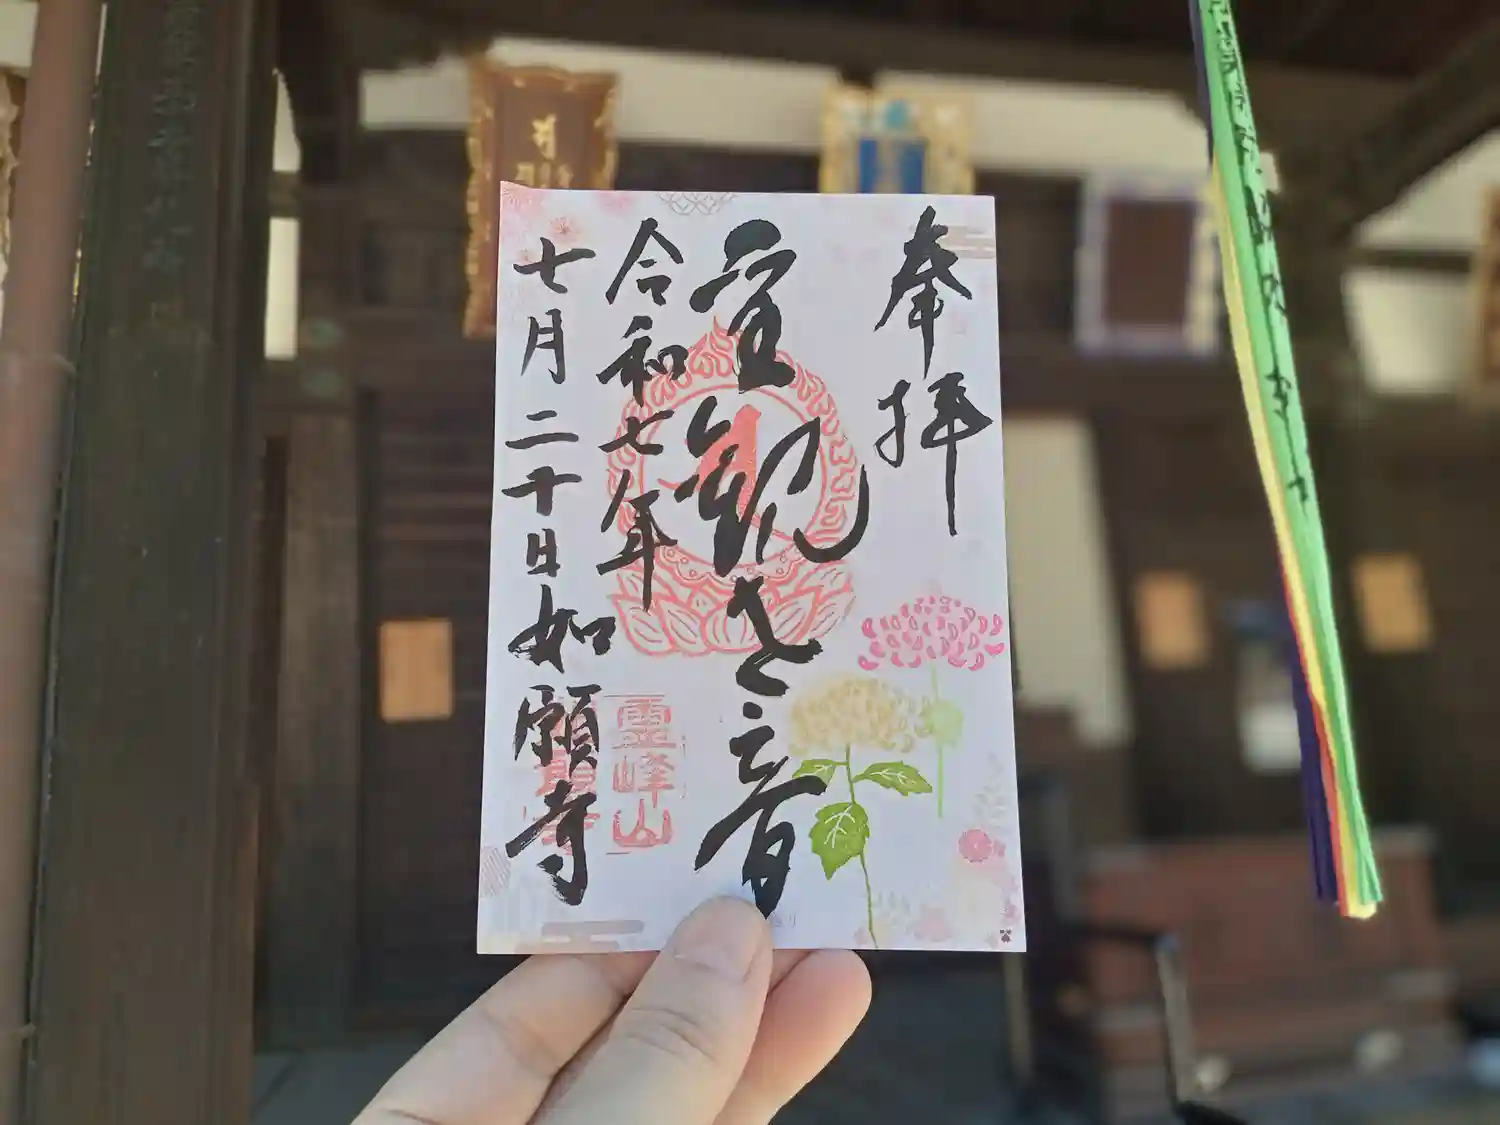 奉拝
聖観世音
令和七年
七月二十日如願寺
霊峰山